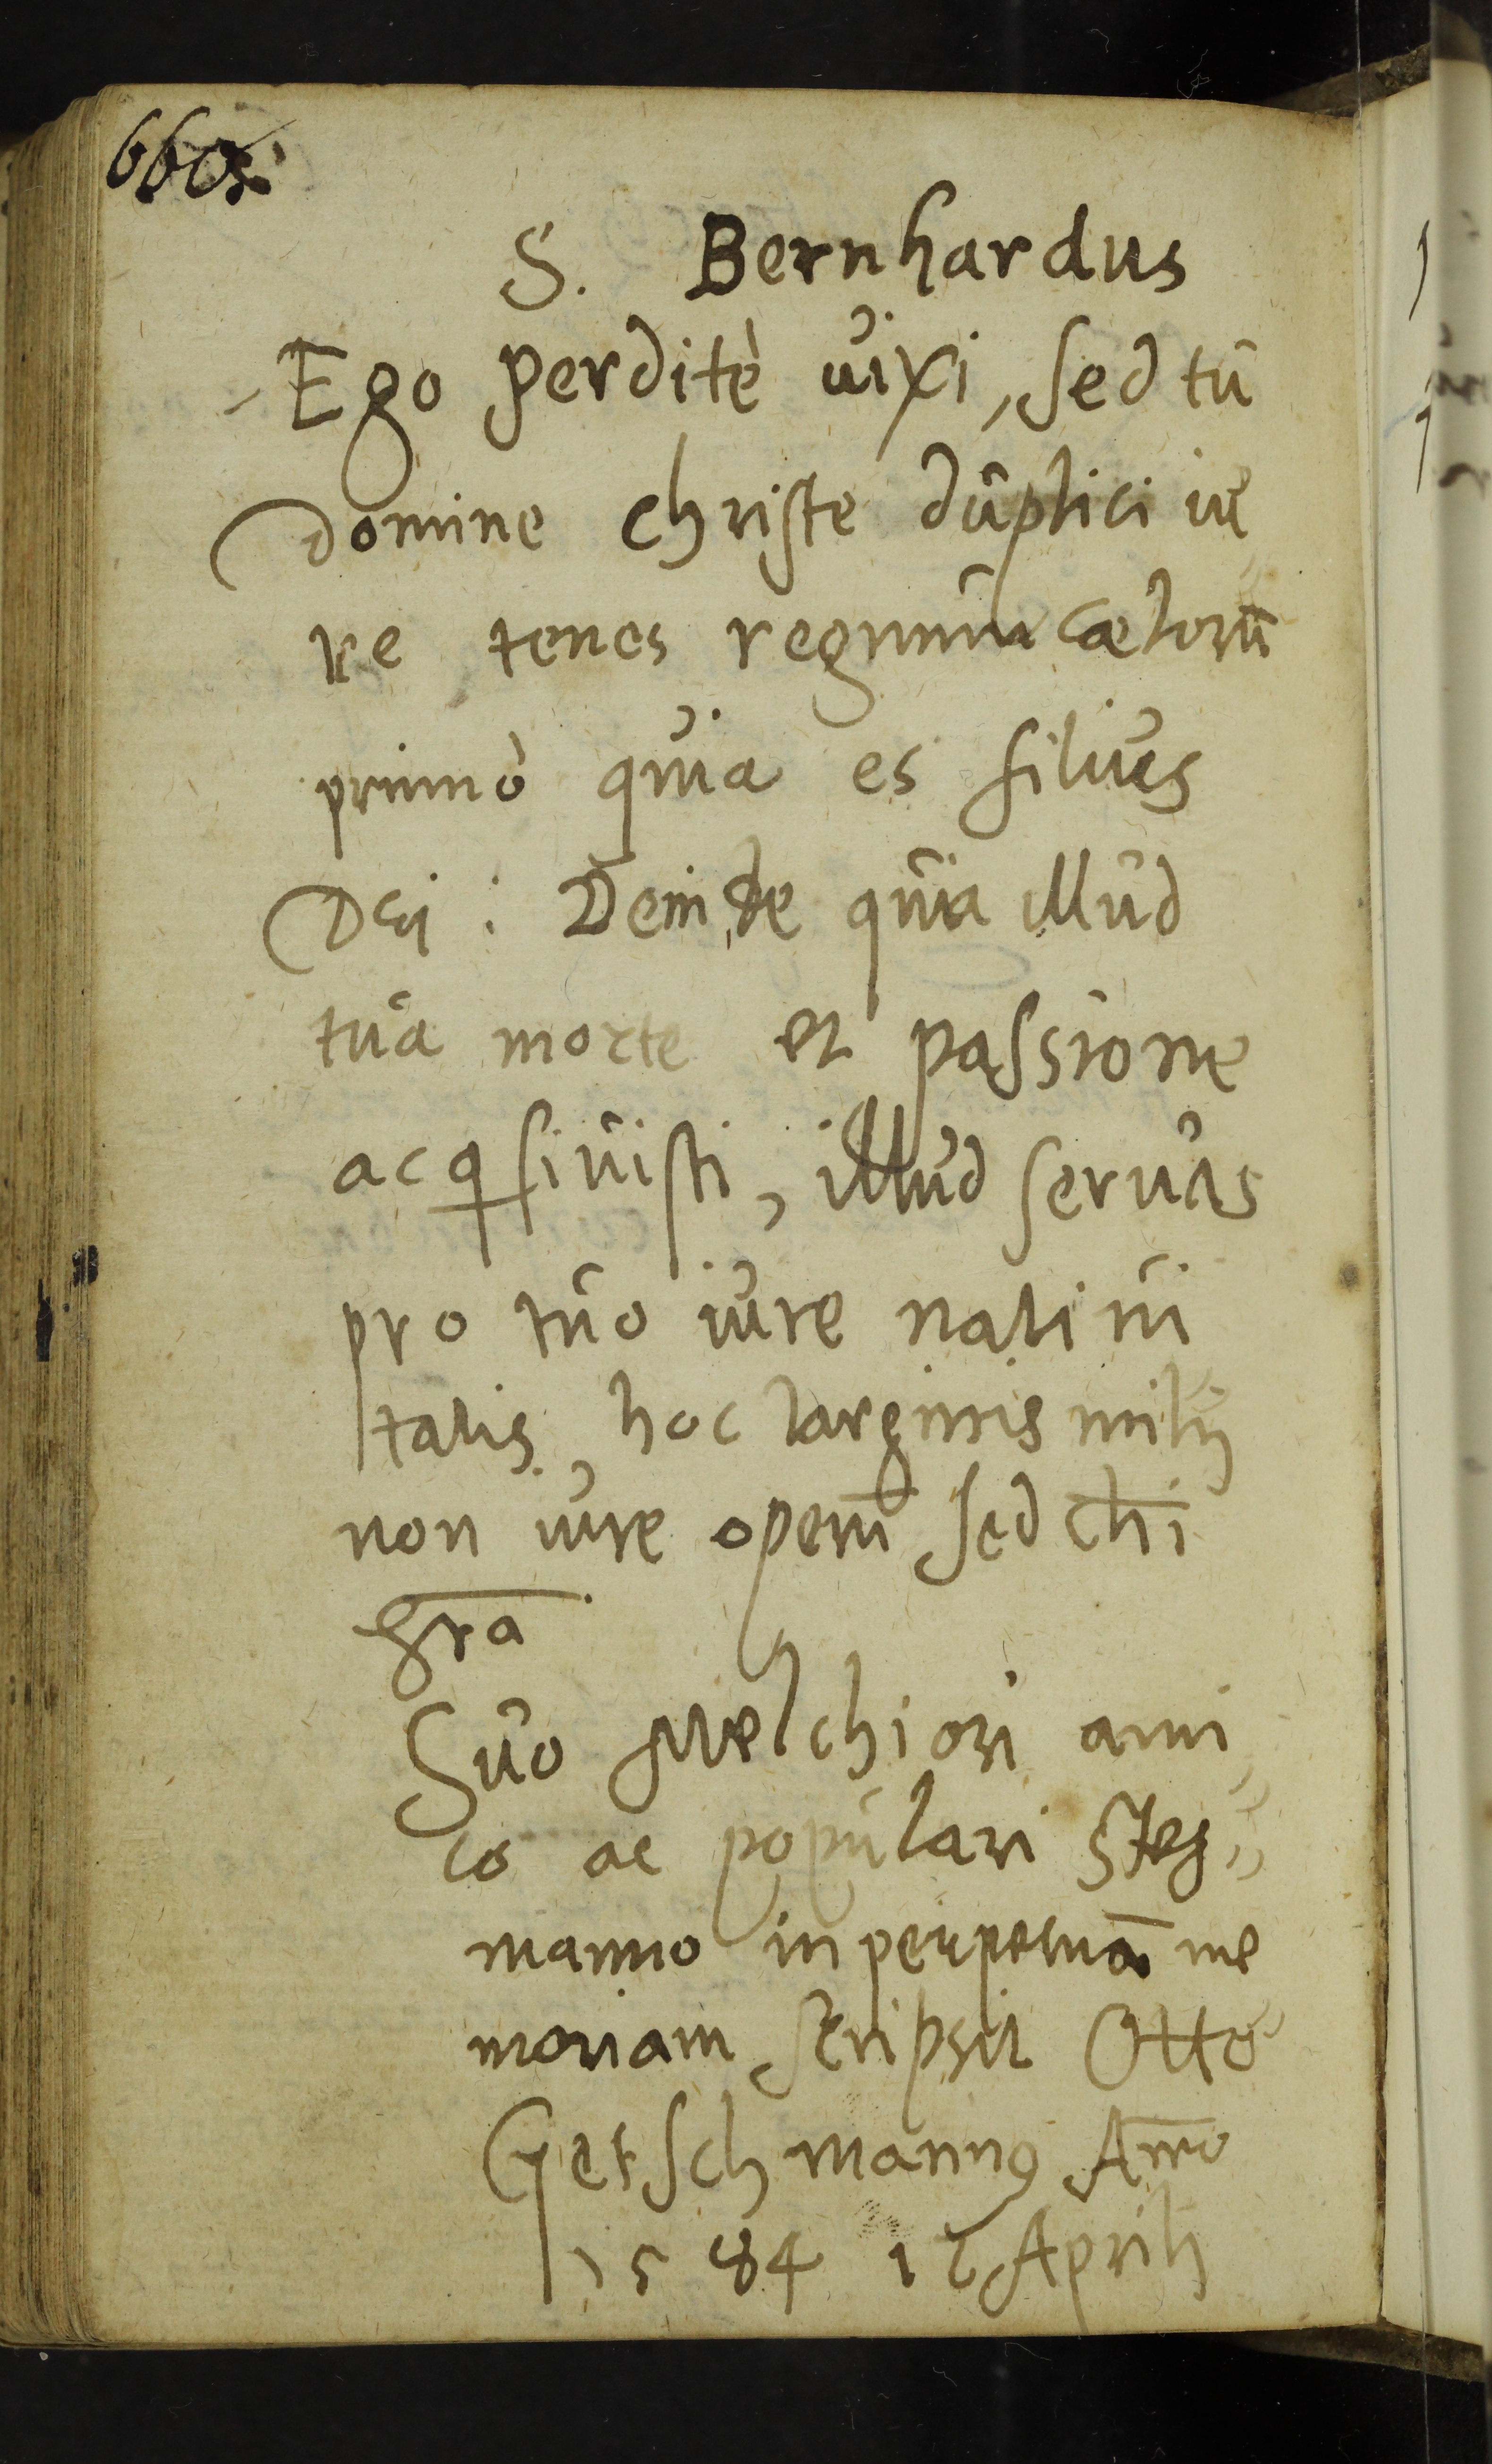 660.
S. Bernhardus
Ego perditè uixi, sed tu
domine christe duplici iu
re tenes regnum cælorū
primò quia es filius
Dei : Deinde quia illud
tua morte et passione
acqsiuisti, illud seruas
pro tuo iure natiui
talis, hoc largiris mihi
non iure operū sed chi
gra
Suo Melchiori ami
co ac populari Steg⸗
manno in perpetuā me
moriam scripsit Otto
Getschmannꝰ Anno
1584 12 Aprilis